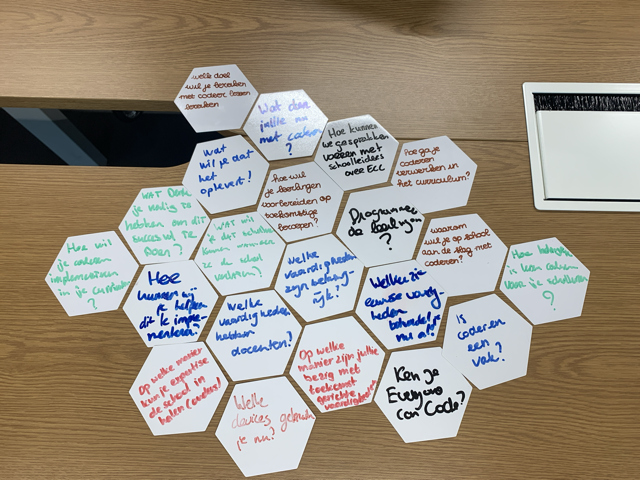 welk doel
wil je bereiken
met codeer lessen
bereiken
Wat doen
jullie nu
met coderen
?
Hoe kunnen
we gesprekken
voeren met
schoolleiders
over ECC
Hoe ga je
coderen
verwerken in
het curriculum?
Wat
wil je dat
het
oplevert?
hoe wil
je leerlingen
voorbereiden op
toekomstige
beroepen?
Programmeer
de leerlijn
?
WAT Denk
je nodig te
hebben om dit
succesvol te
doen?
WAT wil
je dat scholen
ze de school
waarom
wil je op school
aan de slag met
coderen?
Hoe wil
je coderen
implementeren
in je curriculum
?
Hoe
kunnen wij
je helpen
dit te imple-
menteren?
Welke
vaardigheden
zijn belang-
rijk?
Welke 21e
eeuwse vaardig-
heden
behandel je
nu al?
Hoe belangrijk
is leren coderen
voor je scholieren
Welke
vaardigheden
hebben
docenten?
Is
coderen
een
vak?
Op welke manier
kun je expertise
de school in
halen (ouders)
Op welke
manier zijn jullie
bezig met
toekomst
gerichte
vaardigheden
Ken je
Everyone
can Code?
Welke
devices gebruik
je nu?